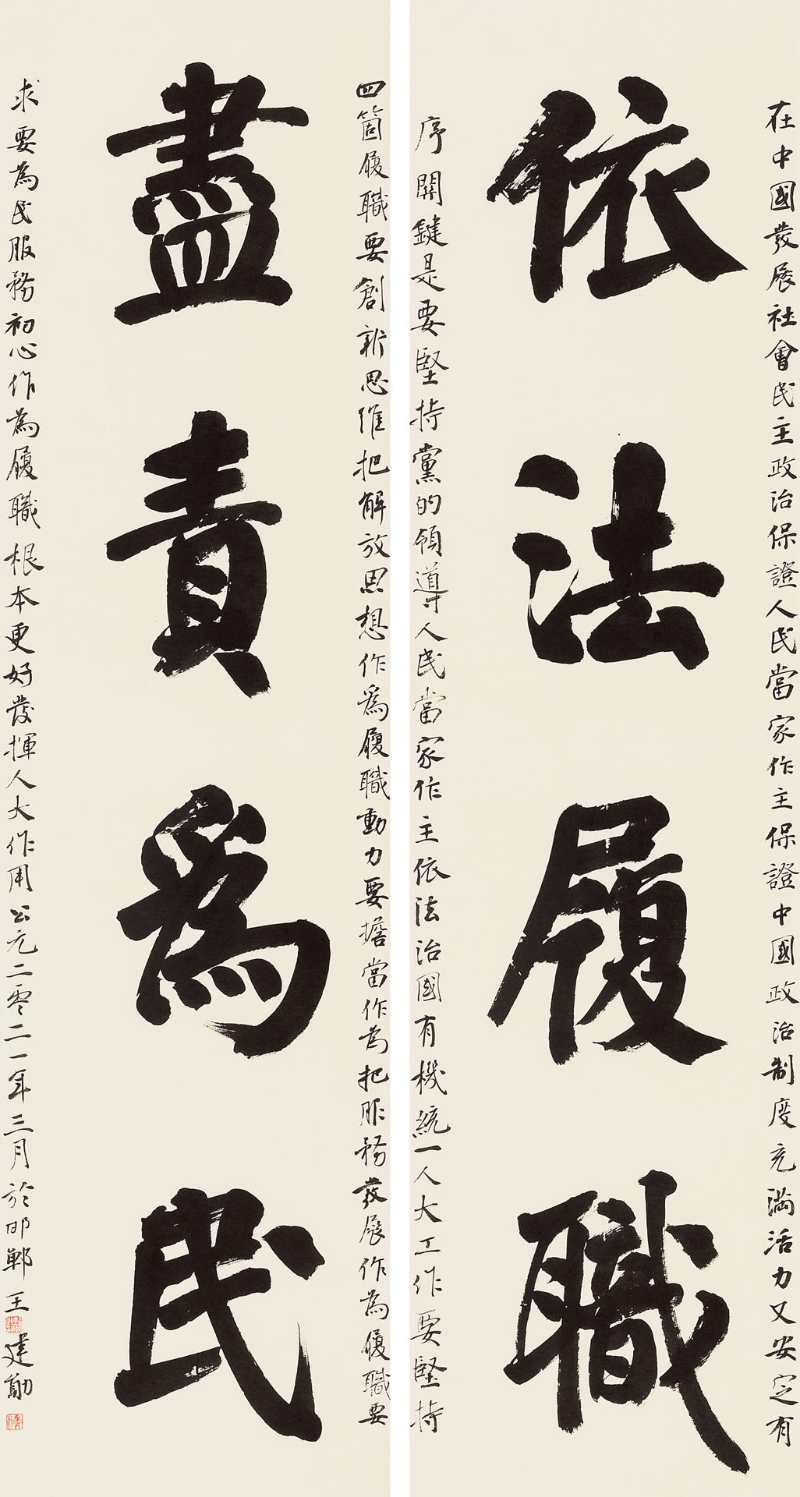 在中國發展社會民主政治保證人民當家作主保證中國政治制度充滿活力又安定有
依法履職
序關鍵是要堅持黨的領導人民當家作主依法治國有機統一人大工作要堅持
四箇履職要創新思維把解放思想作爲履職動力要擔當作為把服務發展作為履職要
盡責爲民
求要為民服務初心作為履職根本更好發揮人大作用公元二零二一年三月於邯鄲王建勛